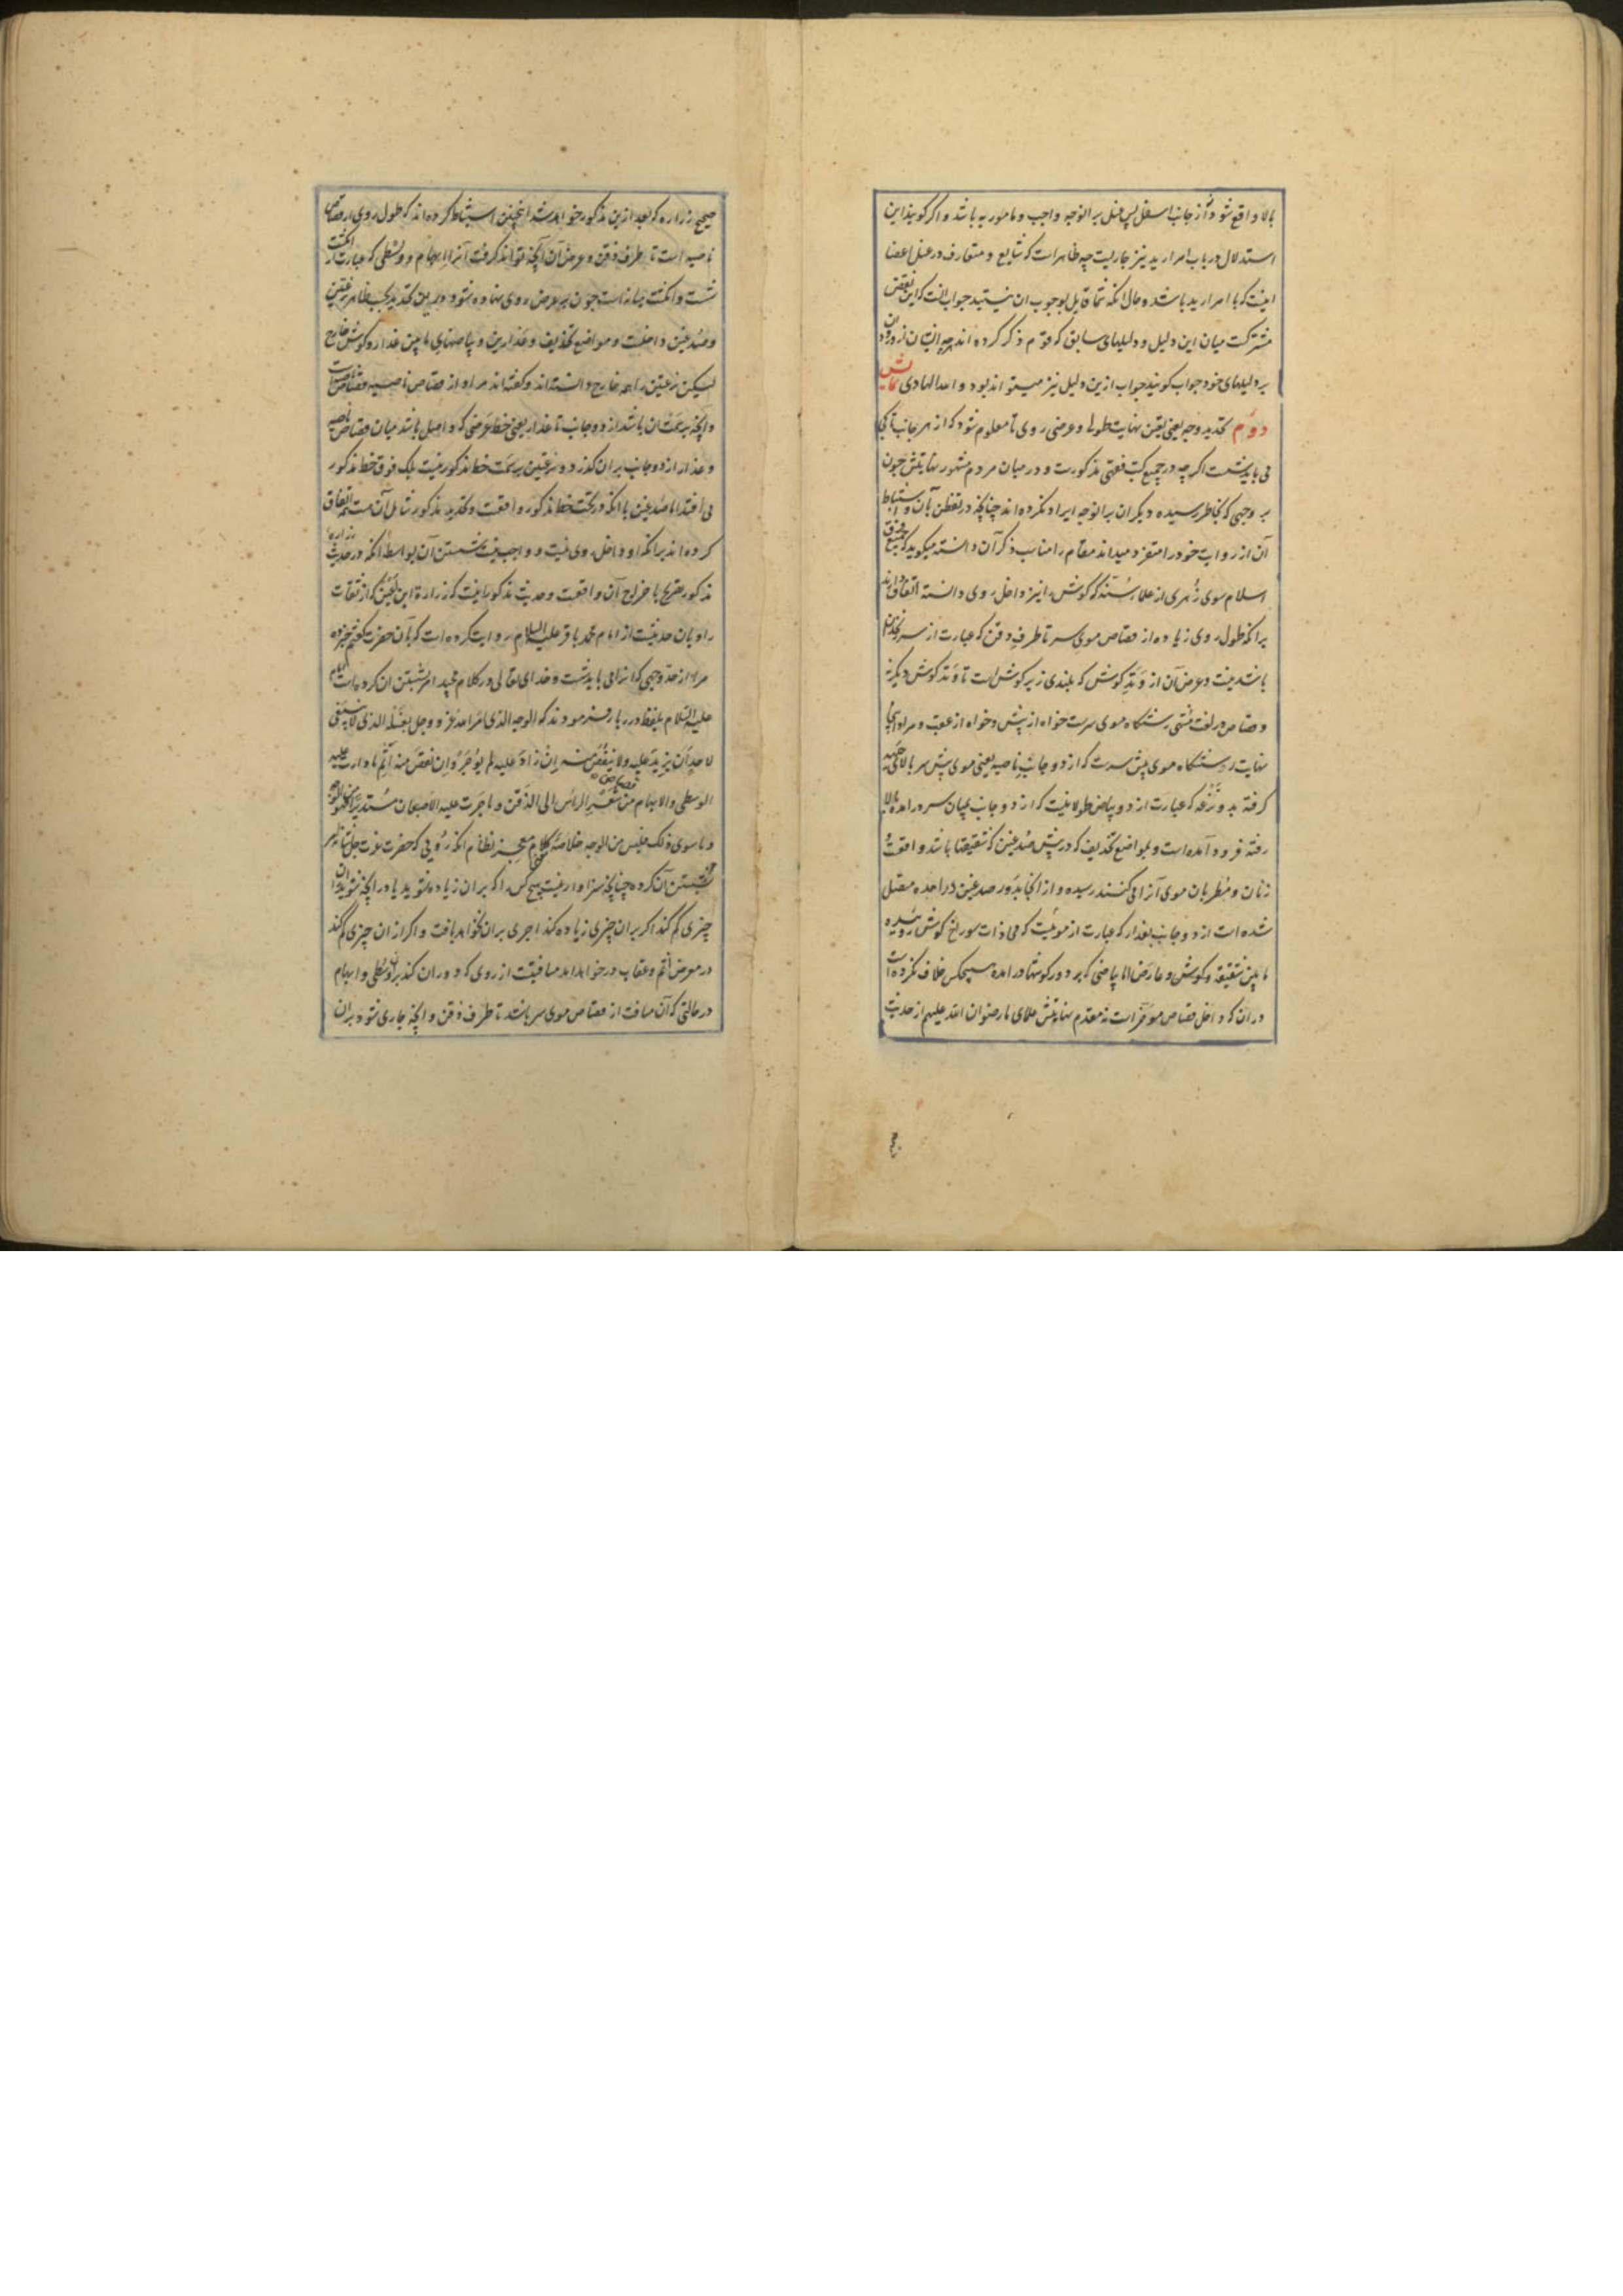 بالا واقع شود و از جانب اسفل پس غسل بر الوجه واجب و مامور به باشد و اکر کویند این
استدلال در باب امرار ید نیز جاریست چه ظاهر است که شایع و متعارف در غسل اعضا
اینست که با امرار ید باشد و حال انکه شما قایل بوجوب ان نیستید جواب انست که این نقض
مشترکست میان این دلیل و دلیلهای سابق که قوم ذکر کرده اند چه ایشان از ورود ان
بر دلیلهای خود جواب کویند جواب ازین دلیل نیز میتواند بود و الله الهادی نمایش
دوم تحدید وجه یعنی تعیین نهایت طولی و عرضی روی تا معلوم شود که از هر جانب تا کجا
می باید شست اکر چه در جمیع کتب فقهی مذکورست و در میان مردم مشهور نهایتش چون
بر وجهی که بخاطر رسیده دیکران بر الوجه ایراد نکرده اند چنانچه در تفطن بآن و استنباط
آن از روایت خود را متفرد میداند مقام را مناسب ذکر آن دانسته میکوید که جمیع فرق
اسلام سوی زُهری از علماء سُنّه که کوش را نیز داخل روی دانسته اتفاق دارند
برانکه طول روی زیاده از قصاص موی سر تا طرف ذقن که عبارت از سر زنخدانم
باشد نیست و عرض آن از وَتَد کوش که بلندی زیر کوش است تا وَتَد کوش دیکر نه
و قصاص در لغت مُنتهی رستنکاه موی سرست خواه از پیش و خواه از عقب و مراد اینجا
نهایت رستنکاه موی پیش سرست که از دو جانب ناصیه یعنی موی پیش سر بالا جبهه
کرفته بدو نَزَعَه که عبارت از دو بیاض طولانیست که از دو جانب بمیان سر در امده بالا
رفته فرود آمده است و بمواضع تحذیف که در پیش صُدغین که شقیقتها باشد واقعست
زنان و مُطربان موی آنرا می کنند رسیده و از انجا بدَور صدغین در امده متصل
شده است از دو جانب بعذار که عبارت از موئیست که محاذات سوراخ کوش روئیده
ما بین شقیقه و کوش و عارض اما بیاضی که بر دور کوشها در امده هیچکس خلاف نکرده است
در ان که داخل قصاص مؤخر است نه مقدم نهایتش علمای ما رضوان الله علیهم از حدیث
صحیح زراره که بعد ازین مذکور خواهد شد اینچنین استنباط کرده اند که طول روی از قصاص
ناصیه است تا طرف ذقن و عرض آن آنچه تواند کرفت آنرا ابهام و وُسْطی که عبارت از انکشت
شست و انکشت میانه است چون بر عرض روی نهاده شود و درین تحدید بحسب ظاهر نزعتین
و صُدغین داخلست و مواضع تحذیف و عذارین و بیاضهای ما بین عذار و کوش خارج
لیکن نزعتین را هم خارج دانسته اند و کفته اند مراد از قصاص ناصیه قصاص
و آنچه بر سَمْت ان باشد از دو جانب تا عذار یعنی خط عَرضی که واصل باشد میان قصاص ناصیه
و عذار از دو جانب بر ان کذرد و نزعتین بر سمت خط مذکور نیست بلک فوق خط مذکور
می افتد اما صُدغین با انکه در تحت خط مذکور واقعست و تحدید مذکور شامل آن هست اتفاق
کرده اند برانکه او داخل روی نیست و واجب نیست شستن آن بواسطهٔ انکه در حدیث زراره
مذکور تصریح باخراج آن واقعست و حدیث مذکور اینست که زرارة ابن اَعْیَن که از ثقات
راویان حدیثست از امام محمد باقر علیه السلام روایت کرده است که بآن حضرت کفتم خبر ده
مرا از حدّ وجهی که انرا می باید شست و خدای تعالی در کلام مجید امر بشستن ان کرده است امام
علیه السّلام بلفظ درربار فرمودند که الوجه الذی امَرَ الله عز و وجل بغَسْله الذی لا ینبغی
لاحدٍ اَن یزیدَ علیه ولا ینقُصَ منه اِن زادَ علیه لم یُوجَر وَ اِن نقصَ منه اَثِمَ ما دارت علیه
الوسطی والابهام من قصاص شَعْرِ الرأس الی الذقن و ما جَرَت علیه الاصبعان مُستدیراً فهو من الوجه
و ما سوی ذلک فلیس من الوجه خلاصهٔ کلام معجز نظام انکه رویی که حضرت عزت جلّ شانه امر
بشستن آن کرده چنانچه سزاوار نیست هیچ کس را که بر ان زیاده بشوید یا در انچه شوید از ان
چیزی کم کند اکر بر ان چیزی زیاده کند اجری بر ان نخواهد یافت و اکر از ان چیزی کم کند
در معرض اثم و عقاب در خواهد امد مسافتیست از روی که دوران کند بر ان وُسْطی و ابهام
در حالتی که آن مسافت از قصاص موی سر باشد تا طرف ذقن و انچه جاری شود بر ان